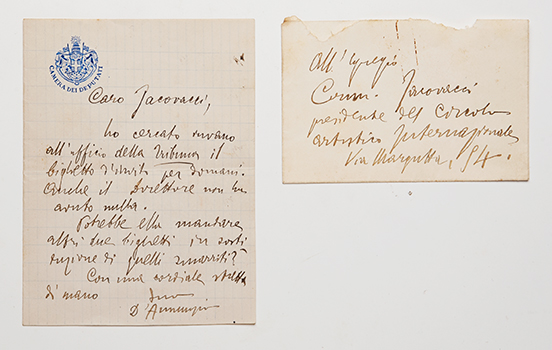 CAMERA DEI DEPUTATI
Caro Jacovacci,
ho cercato invano
all'ufficio della Tribuna il
biglietto d'invito per domani.
Anche il Direttore non ha
avuto nulla.
Potrebbe ella mandare
altri due biglietti in sosti
tuzione di quelli smarriti?
Con una cordiale stretta
di mano
D'Annunzio
All'Egregio
Comm. Jacovacci
presidente del Circolo
artistico Internazionale
Via Margutta, 54.